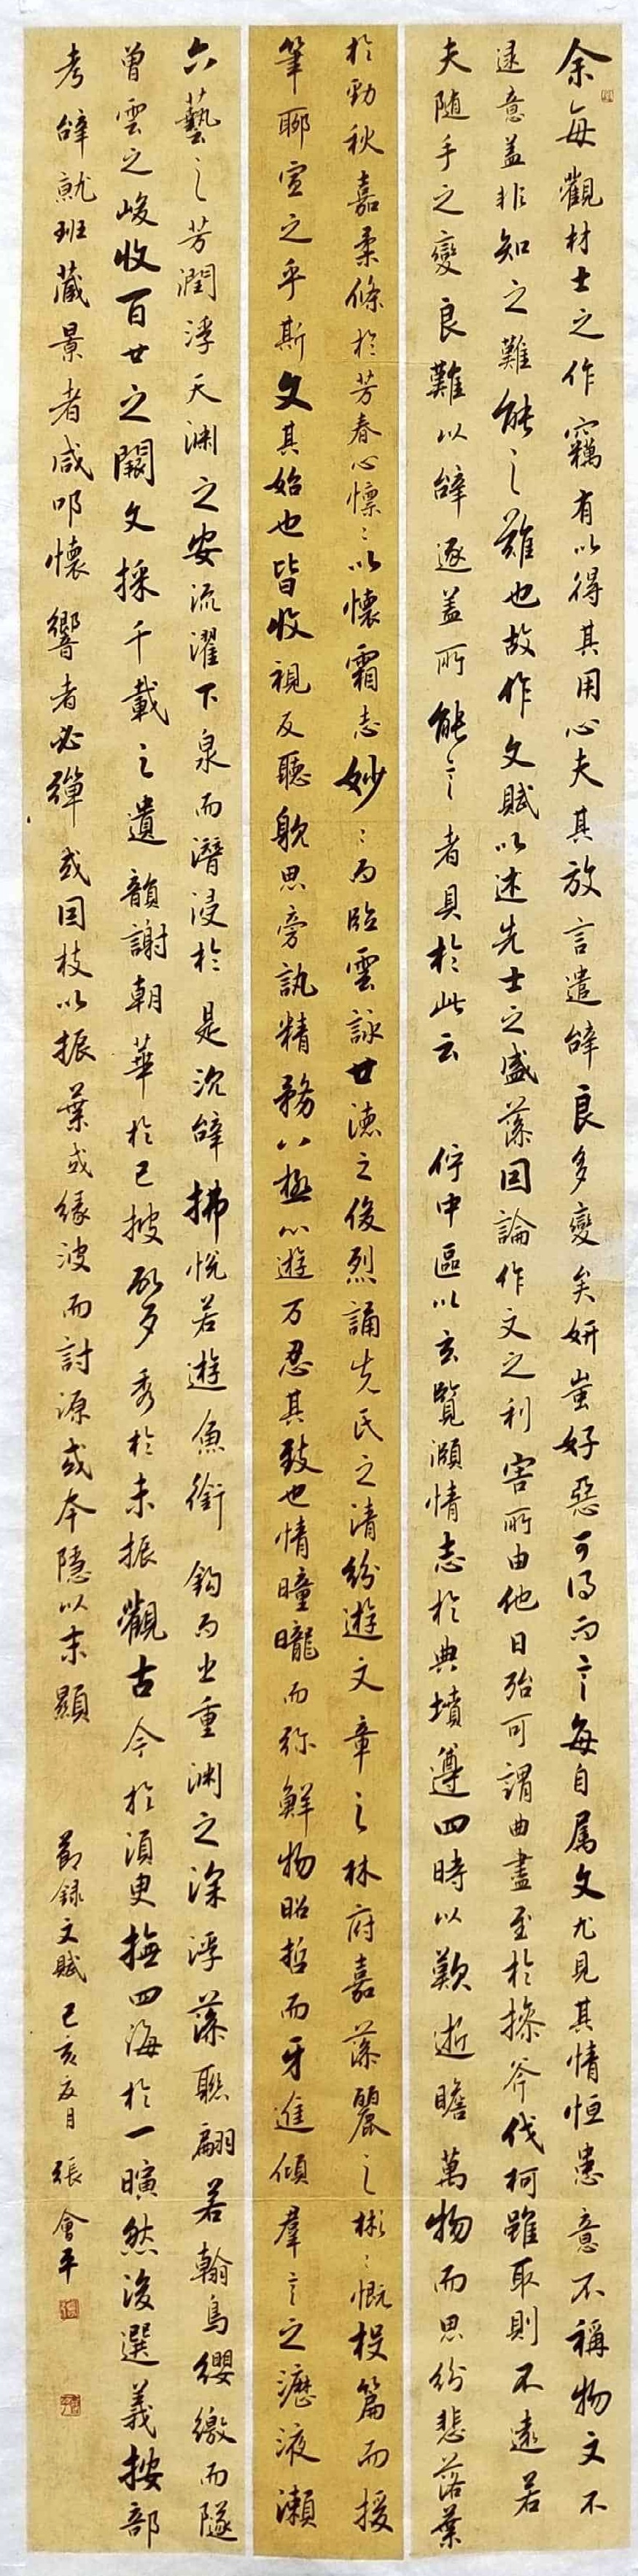 余每觀材士之作竊有以得其用心夫其放言遣辞良多變矣妍蚩好惡可得而言每自属文尤見其情恒患意不稱物文不
逮意盖非知之難能之難也故作文賦以述先士之盛藻因論作文之利害所由他日殆可謂曲盡至於操斧伐柯雖取則不遠若
夫随手之變良難以辞逐盖所能言者具於此云 佇中區以玄覽頤情志於典墳遵四時以歎逝瞻萬物而思紛悲落葉
於勁秋嘉柔條於芳春心懍〻以懷霜志妙〻而臨雲詠世德之俊烈誦先民之清紛遊文章之林府嘉藻麗之彬〻慨投篇而援
筆聊宣之乎斯文其始也皆收視反聽耽思旁訊精務八極心遊万忍其致也情曈曨而弥鮮物昭哲而牙進傾羣言之瀝液瀨
六藝之芳潤浮天渊之安流濯下泉而潛浸於是沉辞拂悅若遊魚銜鈎而出重渊之深浮藻聯翩若翰鳥纓繳而隧
曾雲之峻收百世之闕文採千載之遺韻謝朝華於已披啟夕秀於未振觀古今於須臾撫四海於一曠然後選義按部
考辞就班藏景者咸叩懷響者必彈或因枝以振葉或緣波而討源或本隱以末顯 節錄文賦 己亥友月 張會平